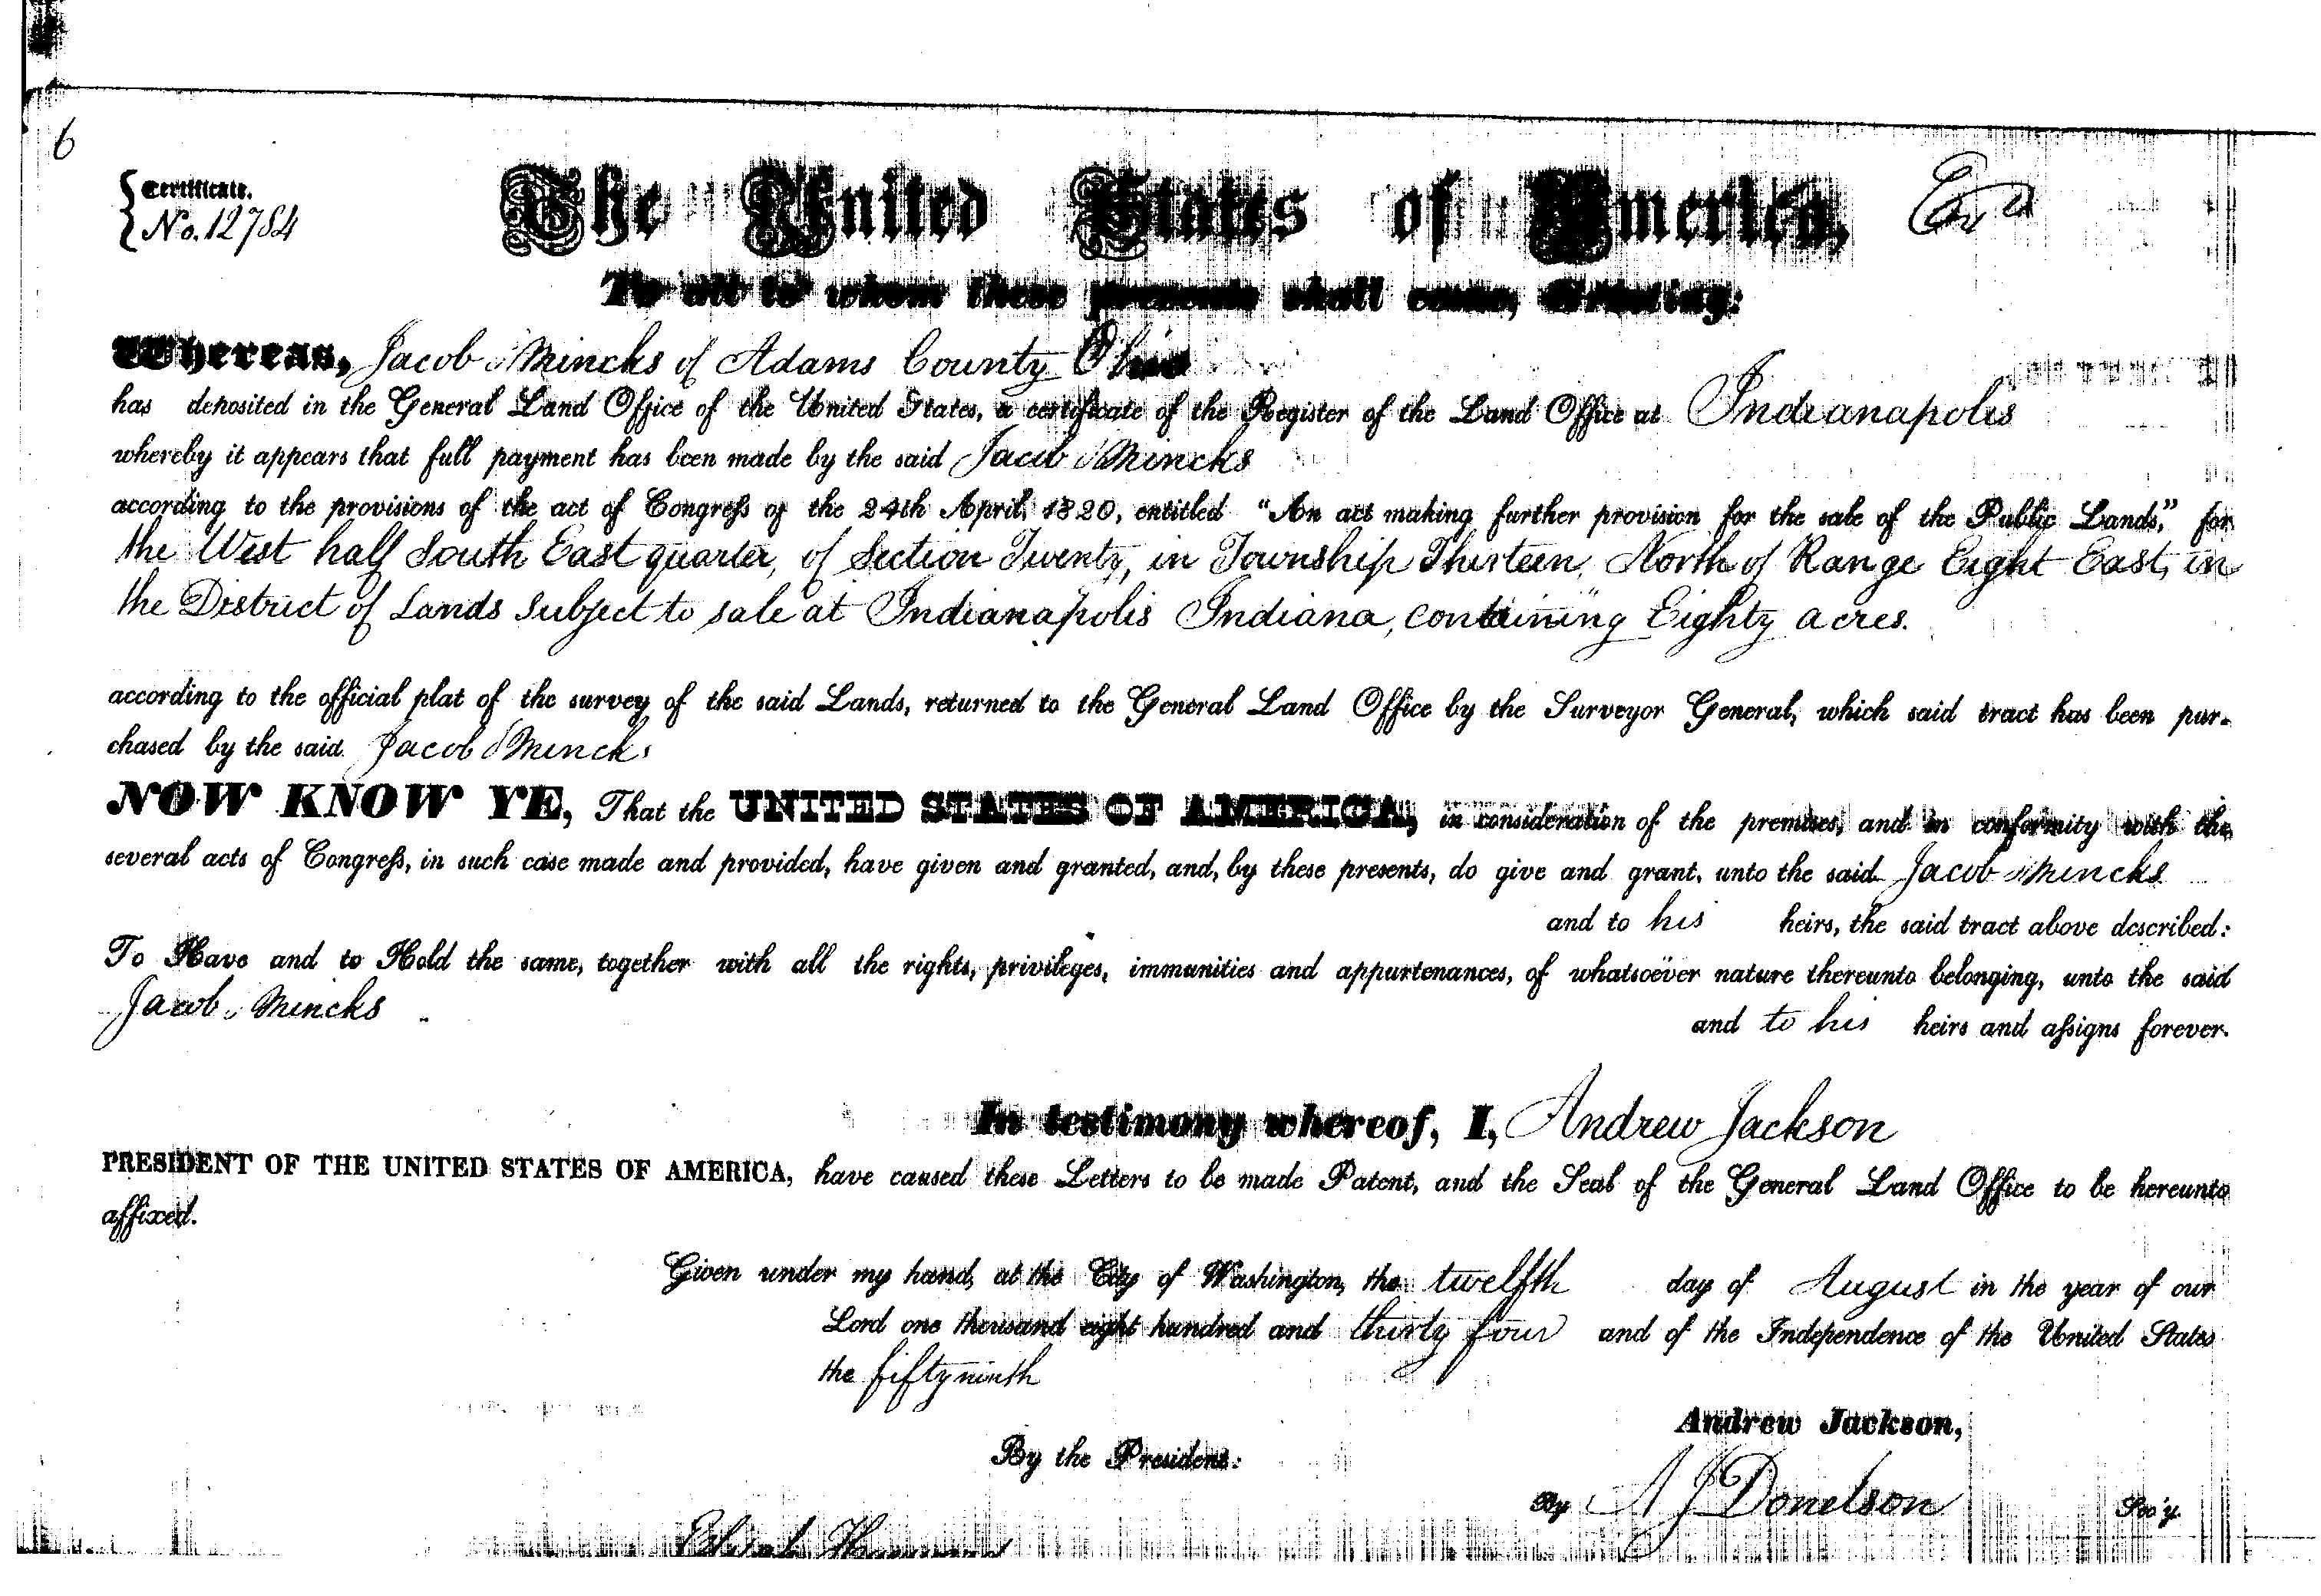 6
Certificate.
No. 12784
The United States of America,
To all to whom these presents shall come, Greeting:
Whereas, Jacob Mincks of Adams County Ohio
has deposited in the General Land Office of the United States, a certificate of the Register of the Land Office at Indianapolis
whereby it appears that full payment has been made by the said Jacob Mincks
according to the provisions of the act of Congress of the 24th April, 1820, entitled "An act making further provision for the sale of the Public Lands," for
the West half South East quarter, of Section Twenty, in Township Thirteen, North of Range Eight East, in
the District of Lands Subject to sale at Indianapolis Indiana, containing Eighty acres.
according to the official plat of the survey of the said Lands, returned to the General Land Office by the Surveyor General, which said tract has been pur-
chased by the said Jacob Mincks
NOW KNOW YE, That the UNITED STATES OF AMERICA, in consideration of the premises, and in conformity with the
several acts of Congress, in such case made and provided, have given and granted, and, by these presents, do give and grant, unto the said Jacob Mincks
and to his heirs, the said tract above described:
To Have and to Hold the same, together with all the rights, privileges, immunities and appurtenances, of whatsoëver nature thereunto belonging, unto the said
Jacob Mincks
and to his heirs and assigns forever.
In testimony whereof, I, Andrew Jackson
PRESIDENT OF THE UNITED STATES OF AMERICA, have caused these Letters to be made Patent, and the Seal of the General Land Office to be hereunto
affixed.
Given under my hand, at the City of Washington, the twelfth day of August in the year of our
Lord one thousand eight hundred and thirty four and of the Independence of the United States
the fifty ninth
Andrew Jackson,
By the President:
By A J Donelson Sec'y.